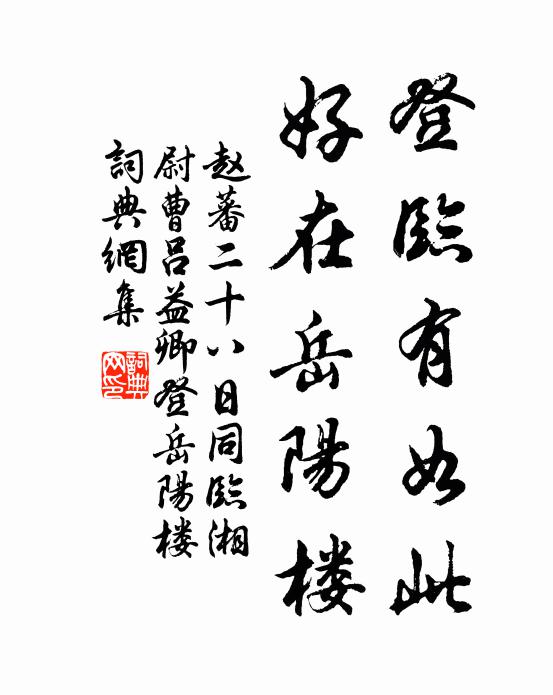 登臨有如此
好在岳陽楼
赵蕃二十八日同臨湘
尉曹吕益卿登岳陽楼
詞典網集
詞典
网印